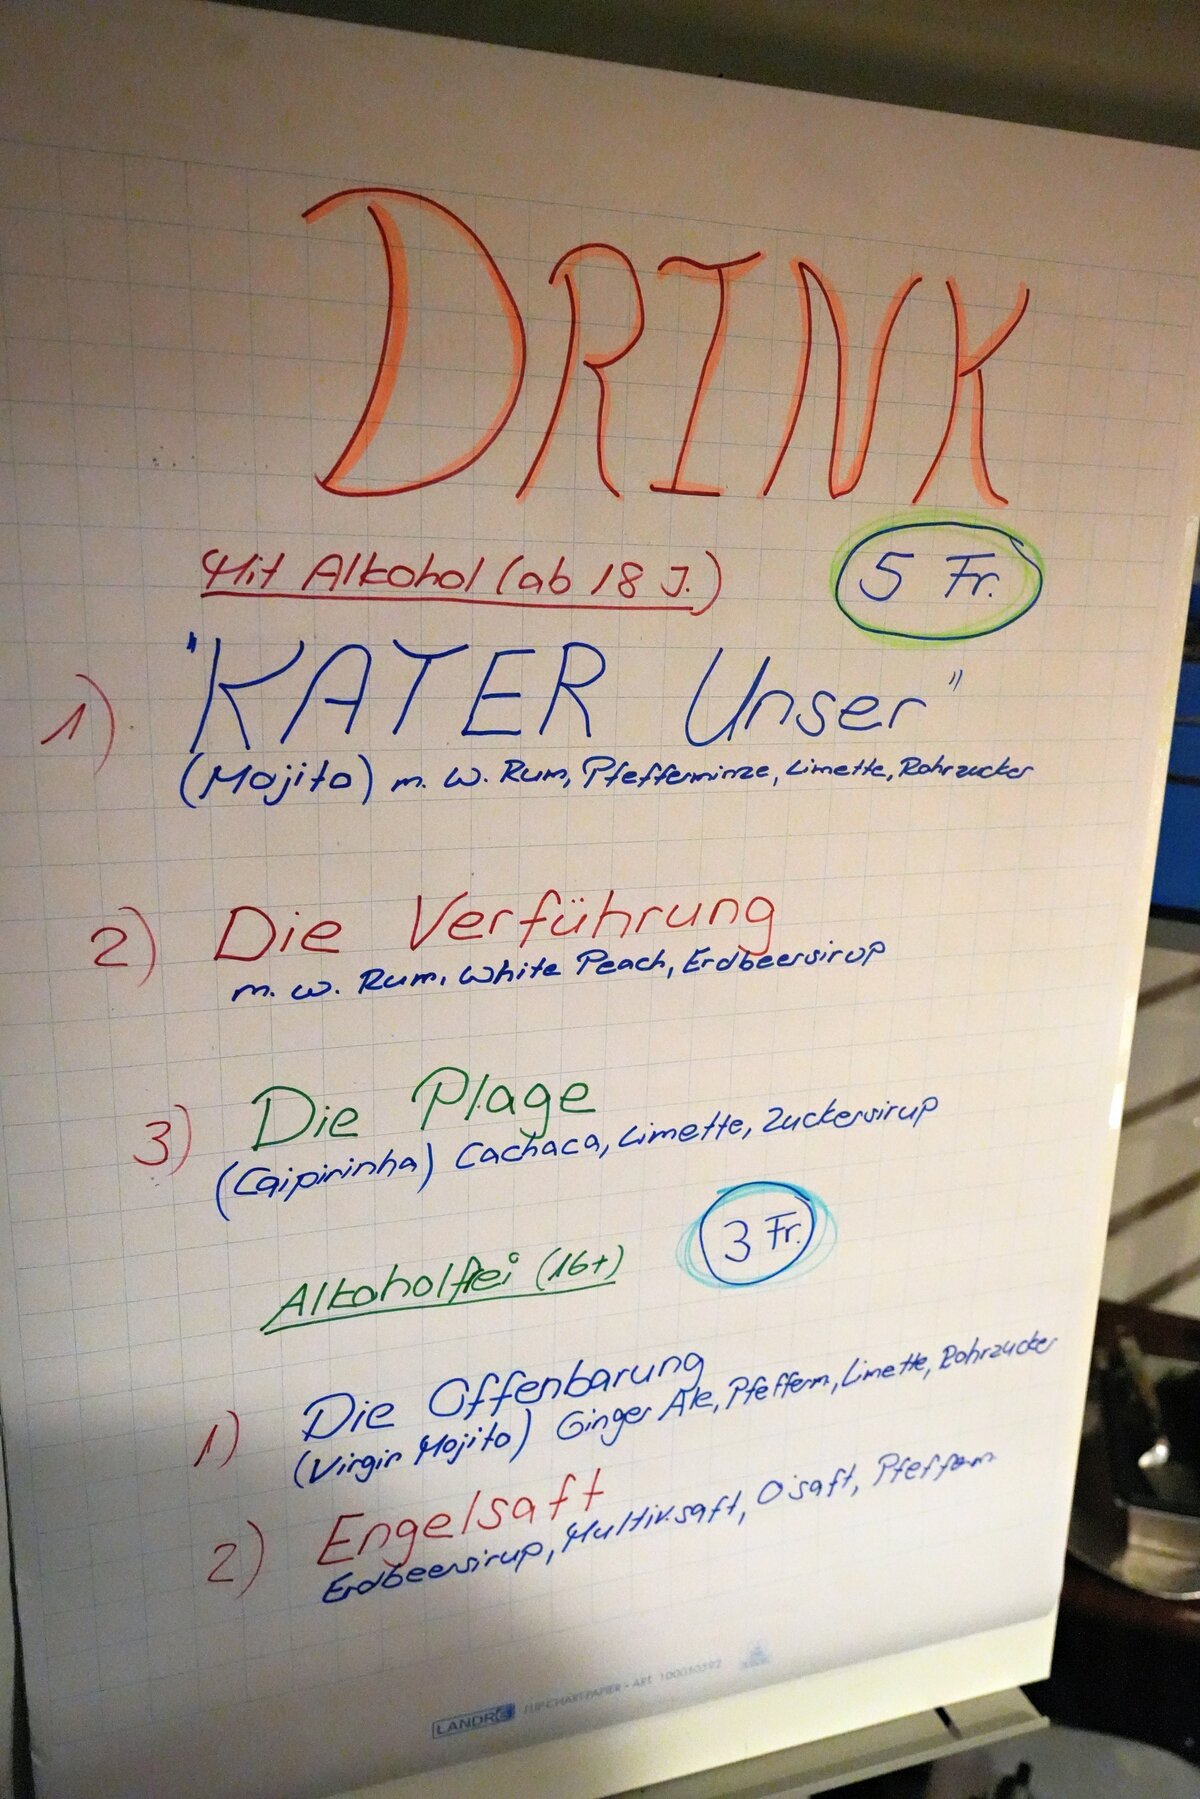 DRINK
Mit Alkohol (ab 18 J.)
5 Fr.
1) "KATER Unser"
(Mojito) m. w. Rum, Pfefferminze, Limette, Rohrzucker
2) Die Verführung
m. w. Rum, White Peach, Erdbeersirup
3) Die Plage
(Caipirinha) Cachaca, Limette, Zuckersirup
Alkoholfrei (16+)
3 Fr.
1) Die Offenbarung
(Virgin Mojito) Ginger Ale, Pfefferm, Limette, Rohrzucker
2) Engelsaft
Erdbeersirup, Multiv.saft, O'saft, Pfefferm
LANDRÉ FLIP-CHART-PAPIER • ART. 100050592